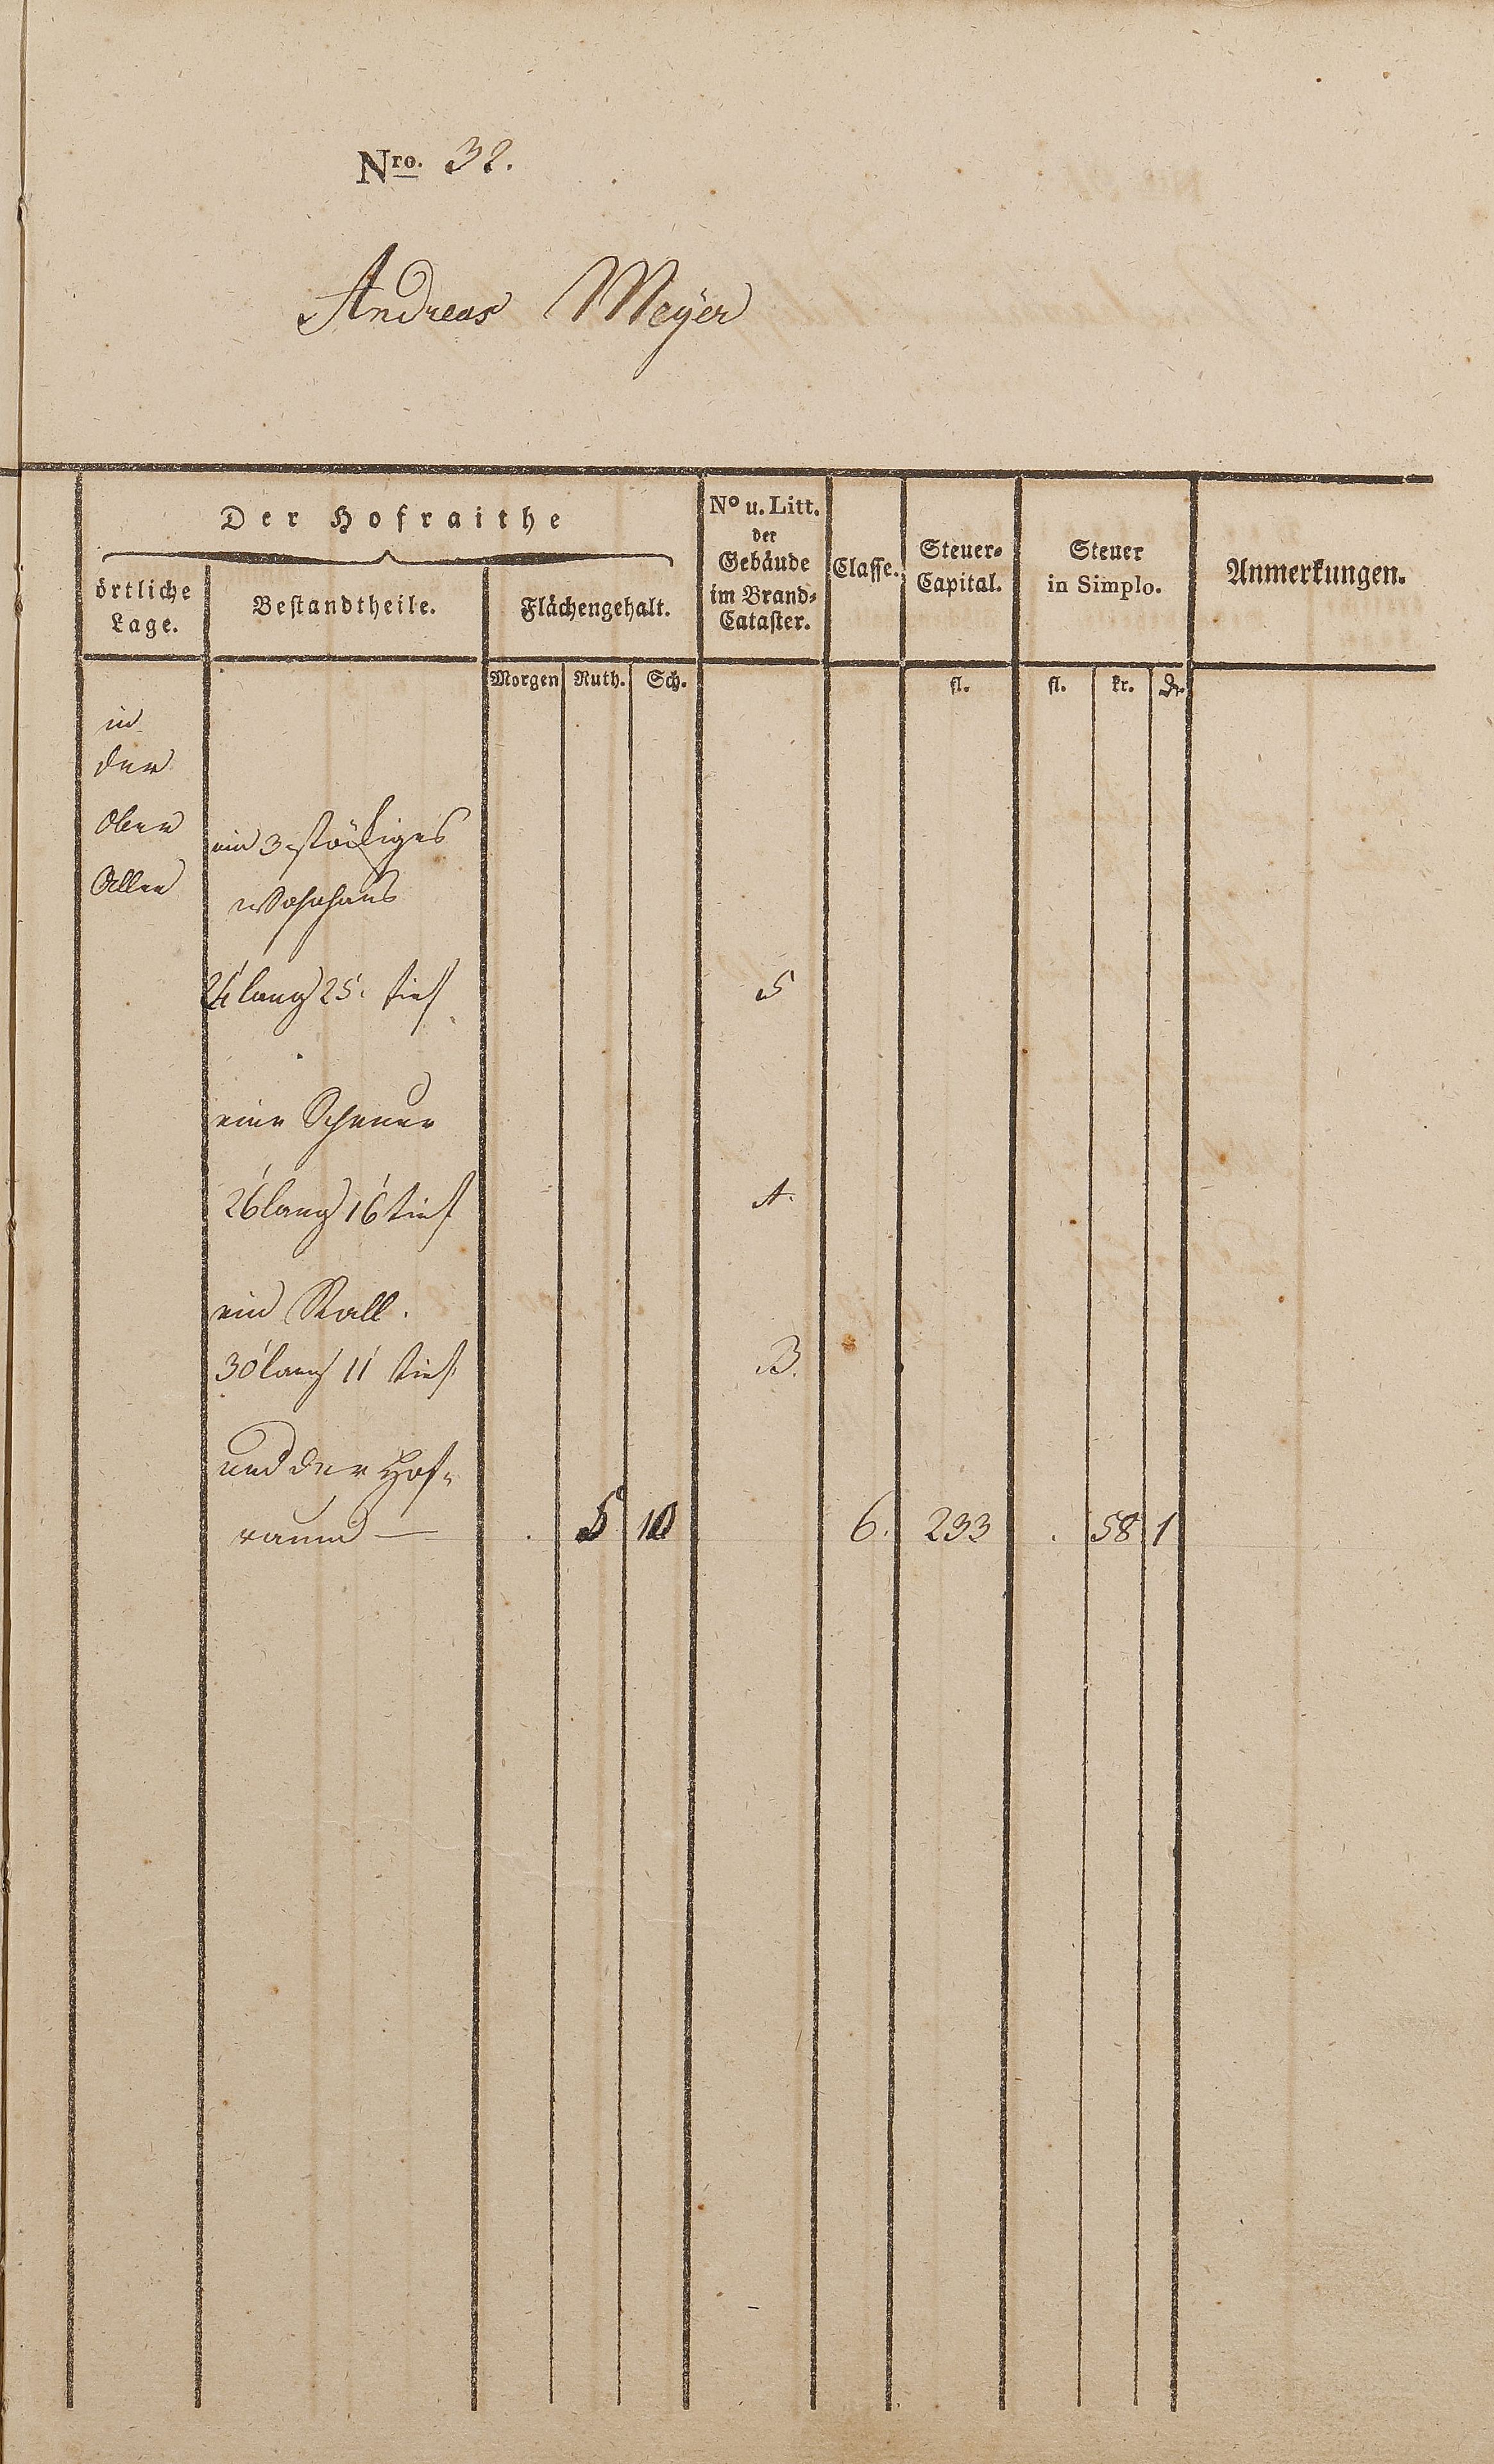 Nro. 32.
Andreas Meÿer
Der Hofraithe
örtliche Lage.
Bestandtheile.
Flächengehalt.
No u. Litt. der Gebäude im Brand-Cataster.
Classe.
Steuer-Capital.
Steuer in Simplo.
Anmerkungen.
Morgen Ruth. Sch. fl. fl. kr. Dr.
in
der
Ober
ein 3 stöckiges
Wohnhaus
lang 25' tief 5
eine Scheuer
26' lang 16' tief A.
ein Stall.
30' lang 11' tief B.
und der Hof-
raum — . 5 10 6. 233 . 58 1